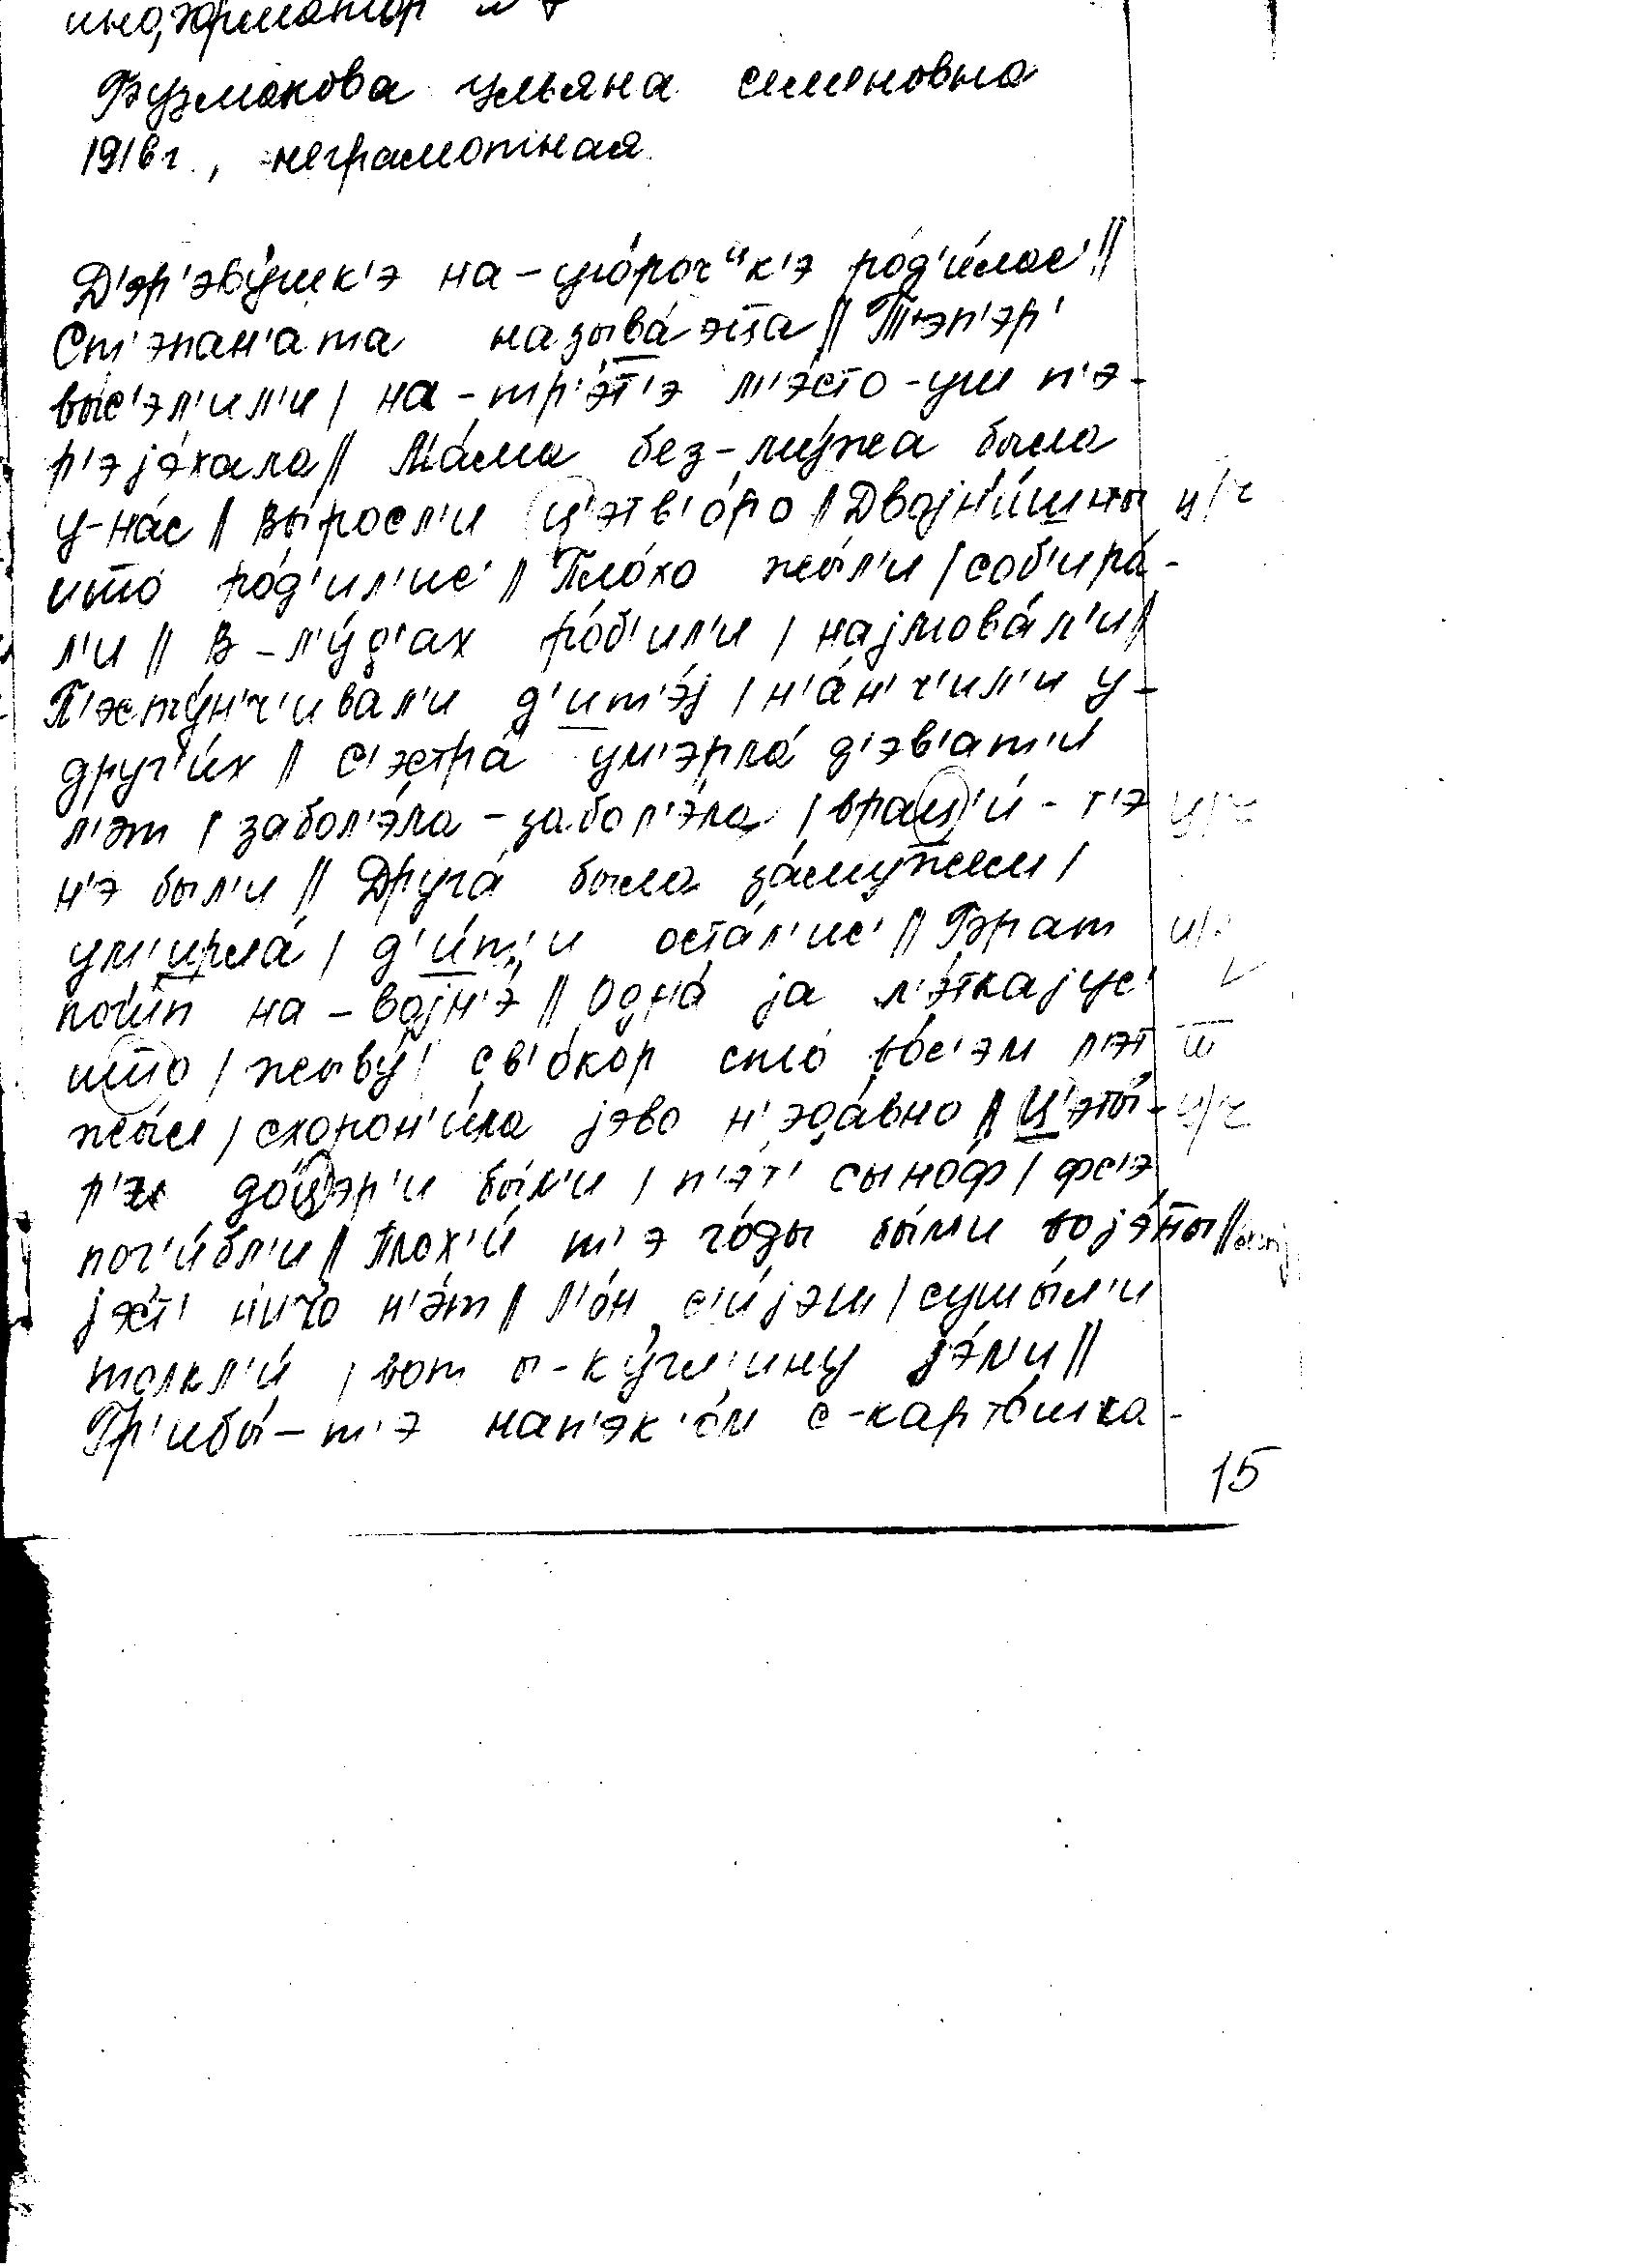 информатор №
Бузмакова Ульяна Семеновна
1916 г., неграмотная
Д'эр'эву́шк'э на-уго́роч"к'э ро́д'и́лас' //
Ст'эпан'а́та называ́эца // Т'эп'э́р'
выс'эл'ил'и / на-тр'э́т'э м'э́сто-уш п'э-
р'эjэ́хала // Ма́ма без-му́жа была
у-на́с // Вы́росл'и ц'этв'о́ро // Двоjн'и́шны ц/ч
што́ ро́д'ил'ис' // Пло́хо жы́л'и / соб'ира́-
л'и // В-л'у́д'ах ро́б'ил'и / наjмова́л'и //
П'эсту́н'ч'ивал'и д'ит'э́j / н'а́н'ч'ил'и у-
друг'и́х // С'эстра́ ум'эрла́ д'эв'ат'и́
л'эт / забол'э́ла-забол'э́ла / врац'и́-т'э ц/ч
н'э был'и // Друга́ была за́мужем /
ум'ирла́ / д'и́т'и оста́л'ис' // Брат и/
пог'и́п на-воjн'э́ // Одна́ jа л'э́ткаjус'
што / жыву́ / св'о́кор сто во́с'эм л'эт ш
жы́л / схорон'и́ла jэво н'эда́вно // Ц'эты́- ц/ч
р'э до́ц'эр'и бы́л'и / п'э́т' сыно́ф / фс'э
пог'и́бл'и // Плох'и́ т'э го́ды бы́ли воjэ́ны //
jэст' н'ичо н'э́т // Л'о́н с'и́jэш / сушы́л'и
толкл'и́ / вот ы-ку́гл'ину jэ́л'и //
Гр'ибы́-т'э нап'эк'о́м с-карто́шка-
15